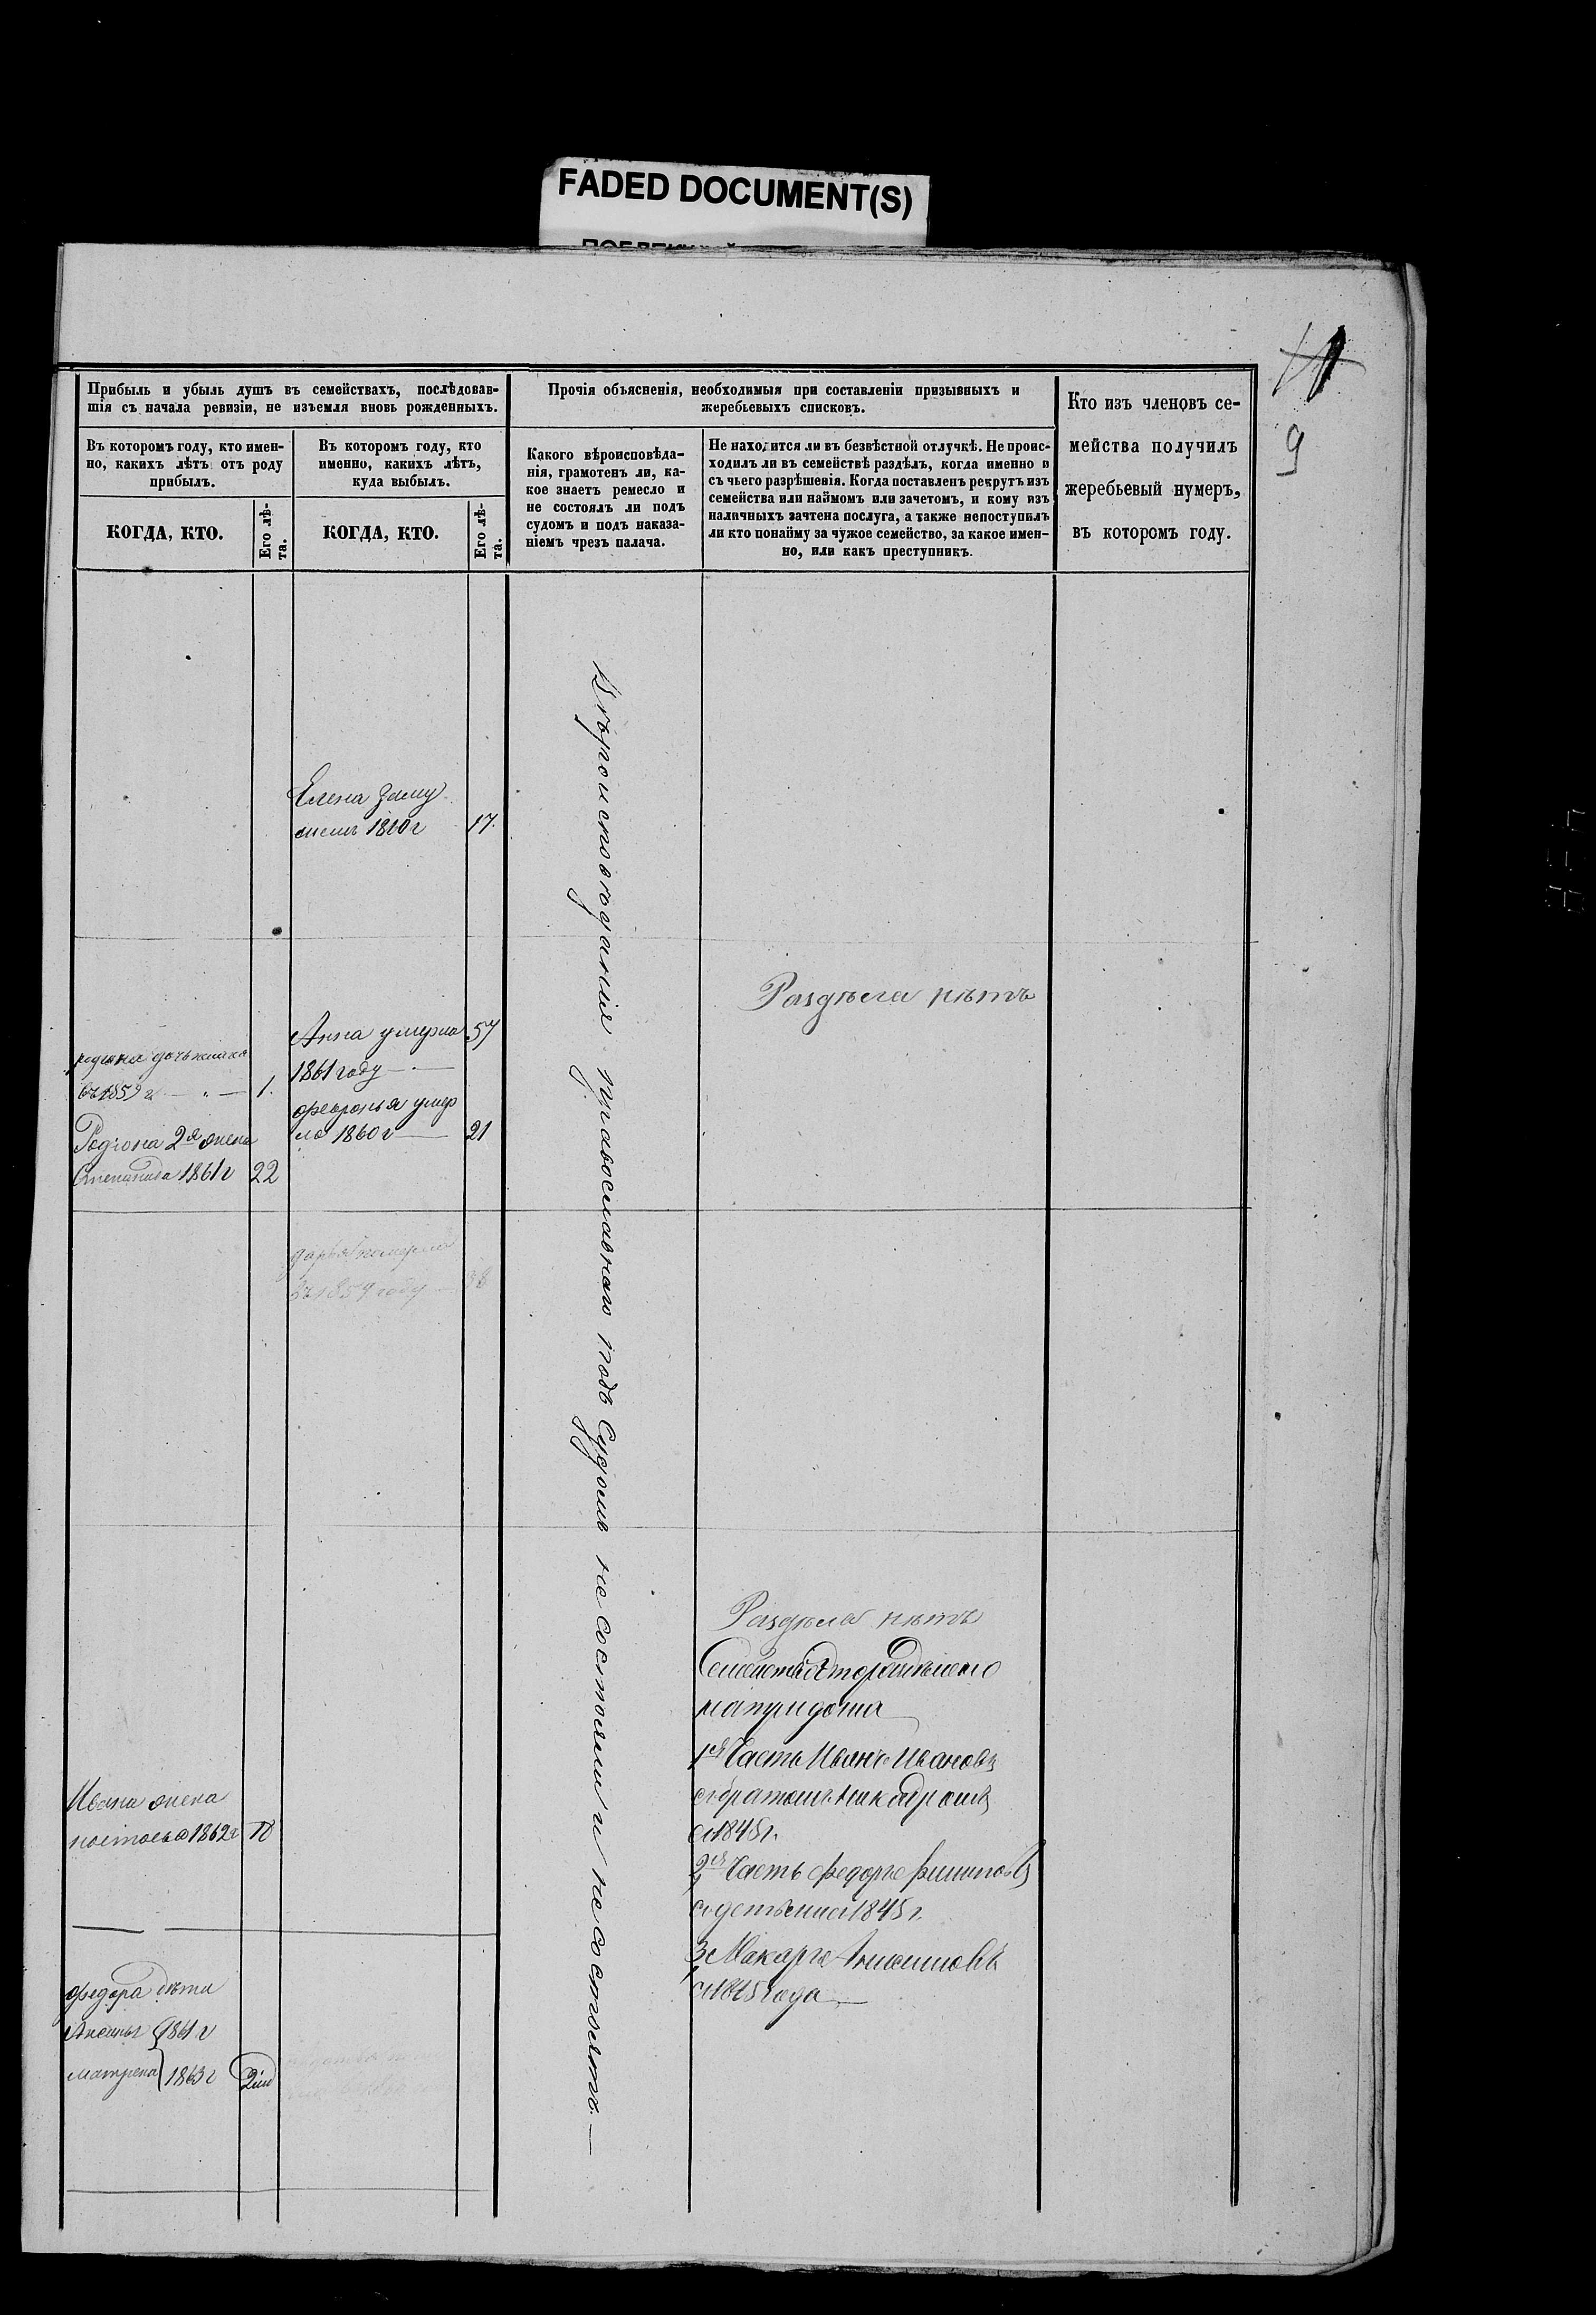 FADED DOCUMENT(S)
9
Прибыль и убыль душъ въ семействахъ, послѣдовав-
шія съ начала ревизіи, не изъемля вновь рожденныхъ.
Въ которомъ году, кто имен-
но, какихъ лѣтъ отъ роду
прибылъ.
КОГДА, КТО.
Его лѣ-
та.
Въ которомъ году, кто
именно, какихъ лѣтъ,
куда выбылъ.
КОГДА, КТО.
Его лѣ-
та.
Прочія объясненія, необходимыя при составленіи призывныхъ и
жеребьевыхъ списковъ.
Какого вѣроисповѣда-
нія, грамотенъ ли, ка-
кое знаетъ ремесло и
не состоялъ ли подъ
судомъ и подъ наказа-
ніемъ чрезъ палача.
Не находится ли въ безвѣстной отлучкѣ. Не проис-
ходилъ ли въ семействѣ раздѣлъ, когда именно и
съ чьего разрѣшенія. Когда поставленъ рекрутъ изъ
семейства или наймомъ или зачетомъ, и кому изъ
наличныхъ зачтена послуга, а также непоступилъ
ли кто понайму за чужое семейство, за какое имен-
но, или какъ преступникъ.
Кто изъ членовъ се-
мейства получилъ
жеребьевый нумеръ,
въ которомъ году.
Елена заму
жемъ 1860 г 17.
Вѣроисповѣданія православнаго подъ Судомъ не состояли и не состоятъ. —
Раздѣла нѣтъ
Анна умерла 57
1861 году —
дочь
въ 1859 г — 1.
Февронья умер
ла 1860 г — 21
Родіона 2я жена
Степанида 1861 г 22
Дарья померла
въ 1859 году —
Раздѣла нѣтъ
Семейство
1я Часть Иванъ Ивановъ
съ братомъ
с 1845 г.
2я Часть Федоръ Филиповъ
с детьми с 1845 г.
3 Макаръ
с 1845 года —
Ивана жена
1862 г 18
Федора дѣти
1861 г
Матрена 1863 г